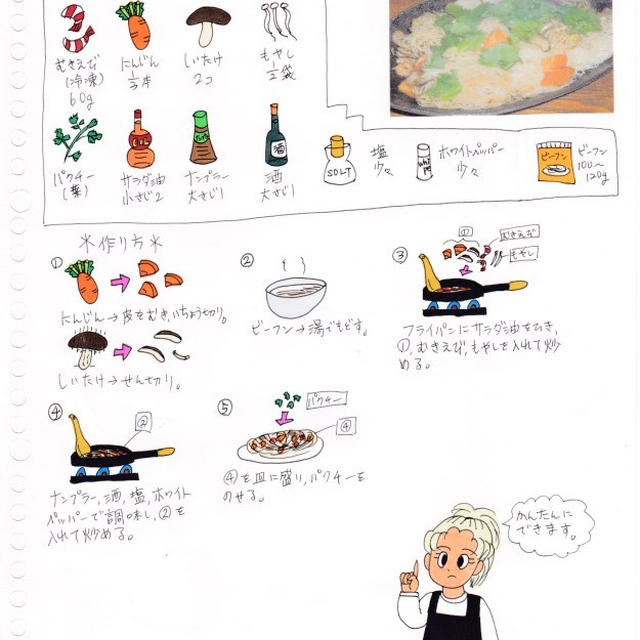 むきえび
(冷凍)
60g
にんじん
1/3本
しいたけ
2コ
もやし
1/2袋
パクチー
(葉)
OIL
サラダ油
小さじ2
ナンプラー
大さじ1
酒
酒
大さじ1
SOLT
塩
少々
ホワイトペッパー
少々
ビーフン
ビーフン
100〜
120g
*作り方*
①
にんじん→皮をむき、いちょう切り。
しいたけ→せん切り。
②
ビーフン→湯でもどす。
③
①
むきえび
もやし
フライパンにサラダ油をひき、
①、むきえび、もやしを入れて炒
める。
④
②
ナンプラー、酒、塩、ホワイト
ペッパーで調味し、②を
入れて炒める。
⑤
パクチー
④
④を皿に盛り、パクチーを
のせる。
かんたんに
できます。